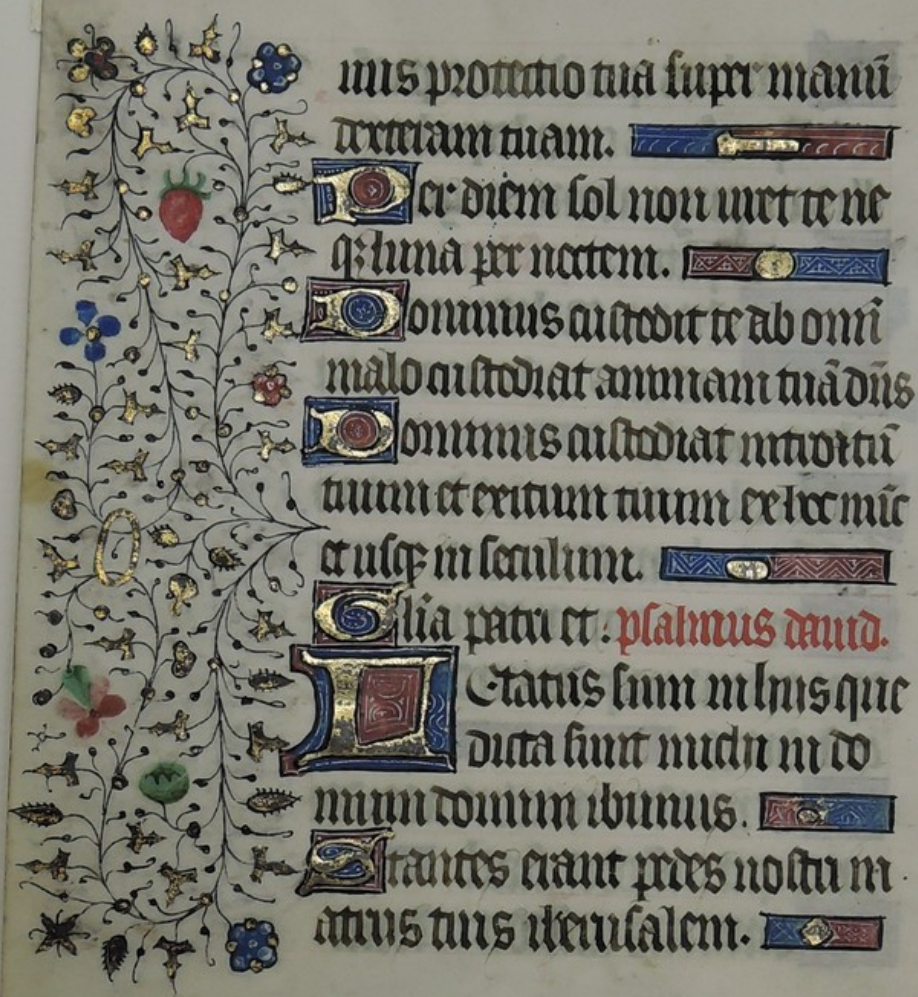 nus protectio tua super manū
dexteram tuam.
Per diem sol non uret te ne
qꝫ luna per noctem.
Dominus custodit te ab omī
malo custodiat animam tuā dn̄s
Dominus custodiat introitū
tuum et exitum tuum ex hoc nūc
et usqꝫ in seculum.
Gl̄ia patri et : psalmus dauid.
Letatus sum in hiis que
dicta sunt michi in do
mum domini ibimus.
Stantes erant pedes nostri in
atriis tuis iherusalem.